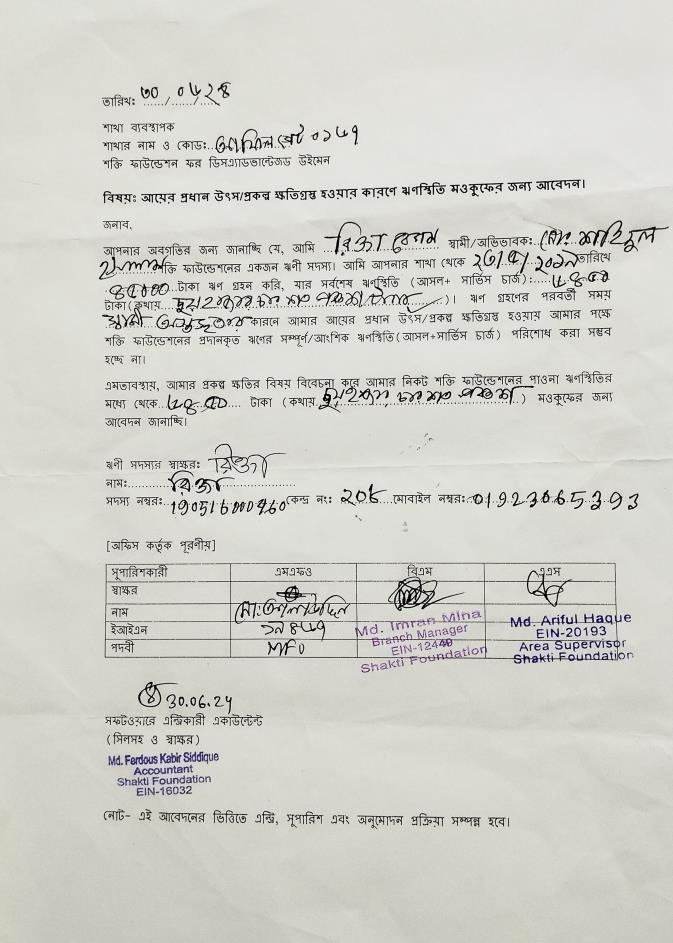 তারিখঃ ৩০.০৬.২৪
শাখা ব্যবস্থাপক
শাখার নাম ও কোডঃ
শক্তি ফাউন্ডেশন ফর ডিসএ্যাডভান্টেজড উইমেন
বিষয়ঃ আয়ের প্রধান উৎস/প্রকল্প ক্ষতিগ্রস্থ হওয়ার কারণে ঋণস্থিতি মওকুফের জন্য আবেদন।
জনাব,
আপনার অবগতির জন্য জানাচ্ছি যে, আমি রিক্তা বেগম স্বামী/অভিভাবকঃ মোঃ শহিদুল
শক্তি ফাউন্ডেশনের একজন ঋণী সদস্য। আমি আপনার শাখা থেকে তারিখে
টাকা ঋণ গ্রহন করি, যার সর্বশেষ ঋণস্থিতি (আসল+ সার্ভিস চার্জ)ঃ
টাকা (কথায় )। ঋণ গ্রহণের পরবর্তী সময়
স্বামী কারনে আমার আয়ের প্রধান উৎস/প্রকল্প ক্ষতিগ্রস্থ হওয়ায় আমার পক্ষে
শক্তি ফাউন্ডেশনের প্রদানকৃত ঋণের সম্পূর্ণ/আংশিক ঋণস্থিতি(আসল+সার্ভিস চার্জ) পরিশোধ করা সম্ভব
হচ্ছে না।
এমতাবস্থায়, আমার প্রকল্প ক্ষতির বিষয় বিবেচনা করে আমার নিকট শক্তি ফাউন্ডেশনের পাওনা ঋণস্থিতির
মধ্যে থেকে টাকা (কথায় ) মওকুফের জন্য
আবেদন জানাচ্ছি।
ঋণী সদস্যের স্বাক্ষরঃ রিক্তা
নামঃ রিক্তা
সদস্য নম্বরঃ কেন্দ্র নংঃ ২০৮ মোবাইল নম্বরঃ 01923065393
[অফিস কর্তৃক পূরণীয়]
সুপারিশকারী এমএফও বিএম এএস
স্বাক্ষর
নাম মোঃ আলাউদ্দিন Md. Imran Mina Md. Ariful Haque
ইআইএন Branch Manager EIN-20193
পদবী MFO EIN-12440 Area Supervisor
Shakti Foundation Shakti Foundation
30.06.24
সফটওয়ারে এন্ট্রিকারী একাউন্টেন্ট
(সিলসহ ও স্বাক্ষর)
Md. Ferdous Kabir Siddique
Accountant
Shakti Foundation
EIN-16032
নোট- এই আবেদনের ভিত্তিতে এন্ট্রি, সুপারিশ এবং অনুমোদন প্রক্রিয়া সম্পন্ন হবে।